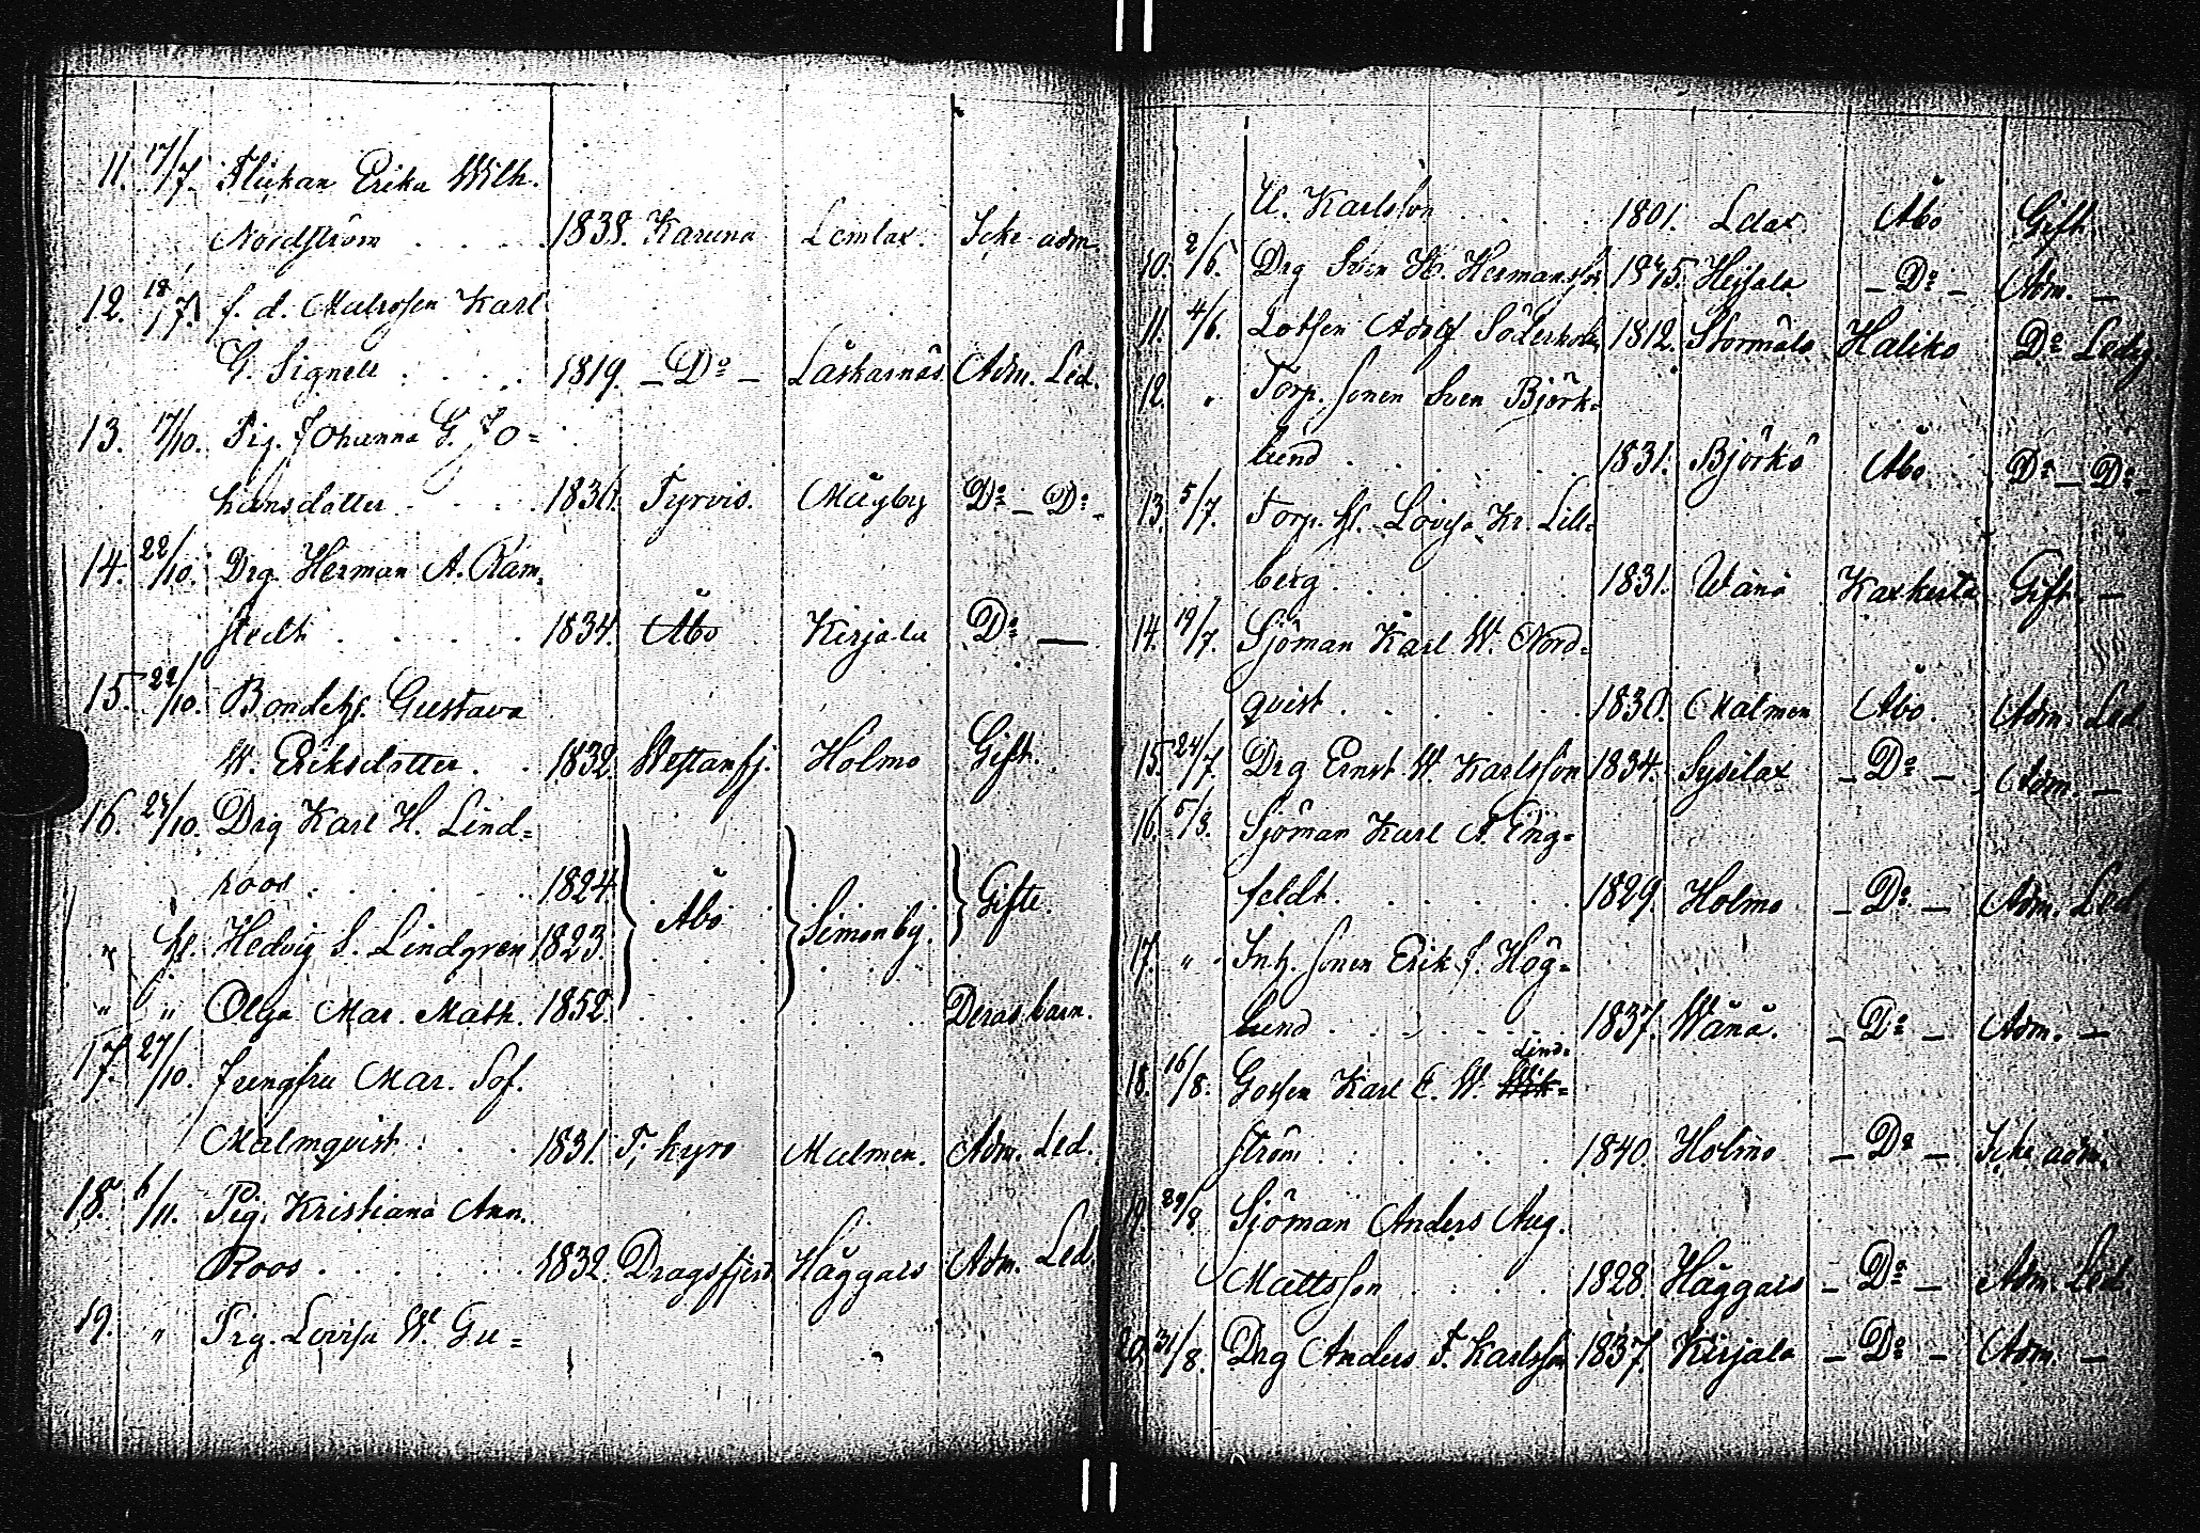 11. 17/7. Flickan Erika Wilh.
Nordström . . . . 1838. Karuna Lemlax. Icke adm.
12. 18/7. f. d. Matrosen Karl
G. Signell . . . . 1819. – Do – Låskarnäs Adm. Led.
13. 17/10. Pig. Johanna G. Jo=
hansdotter . . . . 1836. Tyrvis. Mågby Do – Do –
14. 22/10. Drg Herman A. Ram=
stedt . . . . 1834. Åbo Kirjala Do —
15. 22/10. Bondeh. Gustava
W. Eriksdotter . . 1832. Westanfj. Holmo Gift.
16. 24/10. Drg Karl H. Lind=
roos . . . . . . 1824. Åbo Simonby. Gifte.
" h. Hedvig S. Lindgren 1823.
" " Olga Mar. Math. 1852. . . . Deras barn.
17. 27/10. Jungfru Mar. Sof.
Malmqvist . . . 1831. T; kyro Malmen. Adm. Led.
18. 6/11. Pig. Kristiana Ann.
Roos . . . . . . 1832. Dragsfjerd Häggars Adm. Led.
19. " Pig. Lovisa W. Gu=
U. Karlsson . . . . 1801. Ldax Åbo Gift.
10. 2/6. Drg Sven H. Hermansson Heisala – Do – Adm. –
11. 4/6. Lotsen Adolf Söderholm 1812. Stormälö Haliko Do Ledig.
12. " Torp. sonen Sven Björk=
lund . . . . . . 1831. Björkö Åbo. Do – Do –
13. 5/7. Torp. h. Lovisa Kr. Lill=
berg . . . . . . 1831. Wänö Kaxkerta Gift. –
14. 19/7. Sjöman Karl W. Nord=
qvist . . . . . . 1830. Malmen Åbo. Adm. Led.
15. 24/7. Drg Ernst W. Karlsson 1834. Sysilax – Do – Adm. –
16. 5/8. Sjöman Karl A. Eng=
feldt . . . . . . 1829. Holmo – Do – Adm. Led.
17. " Inh. sonen Erik J. Hög=
lund . . . . . . 1837. Wänö. – Do – Adm. –
Lind=
18. 16/8. Gossen Karl E. W.
ström . . . . . . 1840. Holmo – Do – Icke adm.
19. 29/8. Sjöman Anders Aug.
Mattsson . . . . 1828. Häggars – Do – Adm. Led.
20. 31/8. Drg Anders F. Karlsson 1837. Kirjala – Do – Adm. –